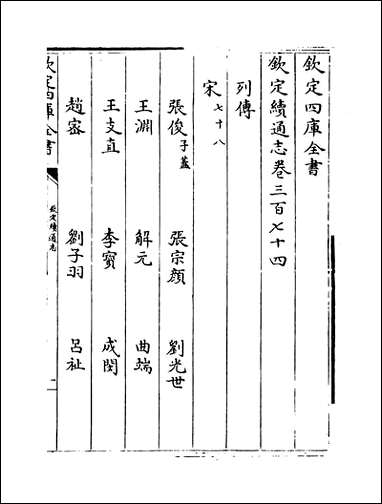 欽定四庫全書
欽定續通志卷三百七十四
列傳
宋七十八
張俊子蓋 張宗顏 劉光世
王淵 解元 曲端
王支直 李寶 成閔
趙密 劉子羽 呂祉
欽定四庫全書 欽定續通志